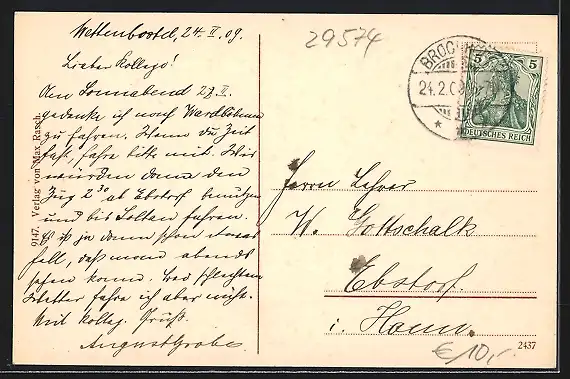 Wettenbostel, 24. II. 09.
Lieber Kollege!
Am Sonnabend 27. II.
gedenke ich nach
zu fahren. Wenn du Zeit
hast, fahre bitte mit. Wir
würden dann den
Zug 2³⁰ ab Ebstorf benutzen
und bis Soltau fahren.
Es ist ja dann schon etwas
hell, daß man abends
sehen kann. Bei schlechtem
Wetter fahre ich aber nicht.
Mit kolleg. Gruß
August Grobe
9147. Verlag von Max Rasch.
29574
24.2.09
5 5
DEUTSCHES REICH
Herrn Lehrer
W. Gottschalk
Ebstorf
i. Hann.
2437
€ 10,-